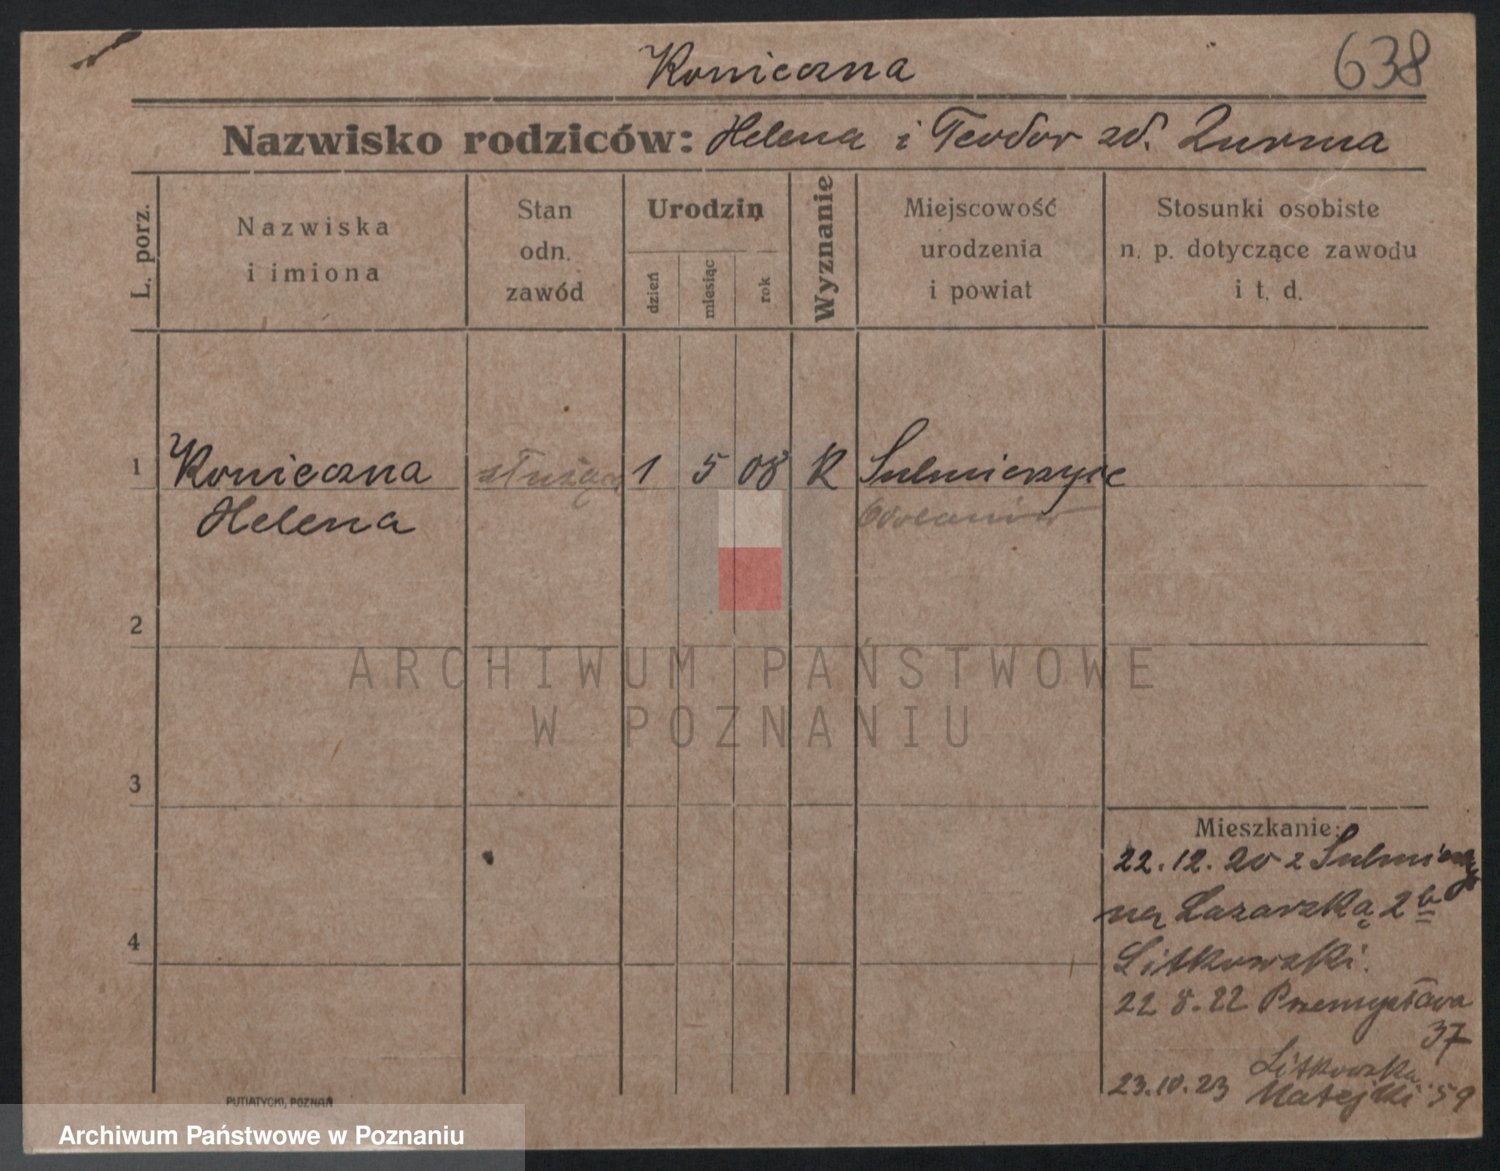 Konieczna
638
Nazwisko rodziców: Helena i Teodor zd. Zurma
L. porz.
Nazwiska
i imiona
Stan
odn.
zawód
Urodzin
dzień
miesiąc
rok
Wyznanie
Miejscowość
urodzenia
i powiat
Stosunki osobiste
n. p. dotyczące zawodu
i t. d.
1 Konieczna służąca 1 5 08 R Sulmierzyce
Helena
2
ARCHIWUM PAŃSTWOWE
W POZNANIU
3
4
Mieszkanie:
22.12.20 z Sulmierzyc
na Łazarską 2 b
Litkowski.
22 8.22 Przemysława
37
Litkowska
23.10.23 Matejki 59
PUTIATYCKI, POZNAŃ
Archiwum Państwowe w Poznaniu